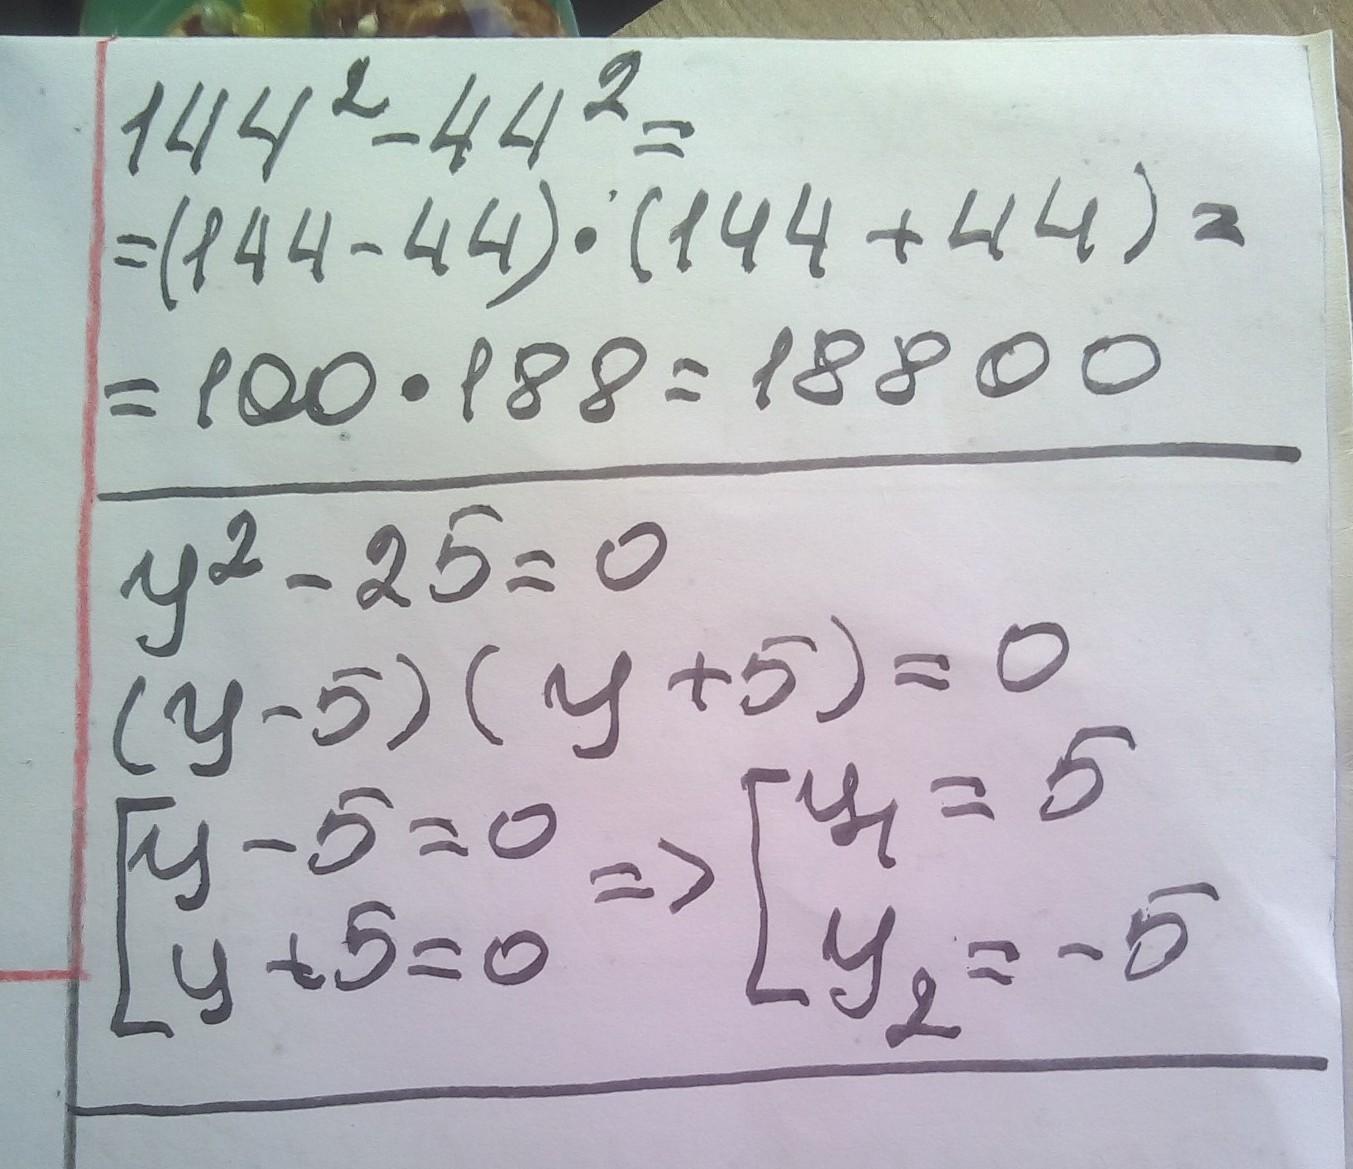 144² - 44² =
= (144 - 44) · (144 + 44) =
= 100 · 188 = 18800
y² - 25 = 0
(y - 5) (y + 5) = 0
[ y - 5 = 0 => [ y₁ = 5
y + 5 = 0 y₂ = -5